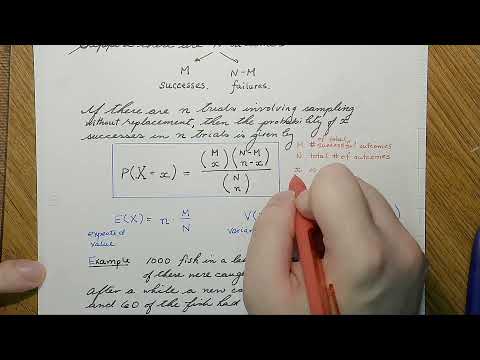 Suppose there are N outcomes
M N-M
successes. failures.
If there are n trials involving sampling
without replacement, then the probability of x
successes in n trials is given by
of total
M # successful outcomes
N total # of outcomes
x
P(X = x) = (M x)(N-M n-x) / (N n)
E(X) = n · M/N V(
expected value varian
Example 1000 fish in a
of these were caug
After a while a new ca
and 60 of the fish had